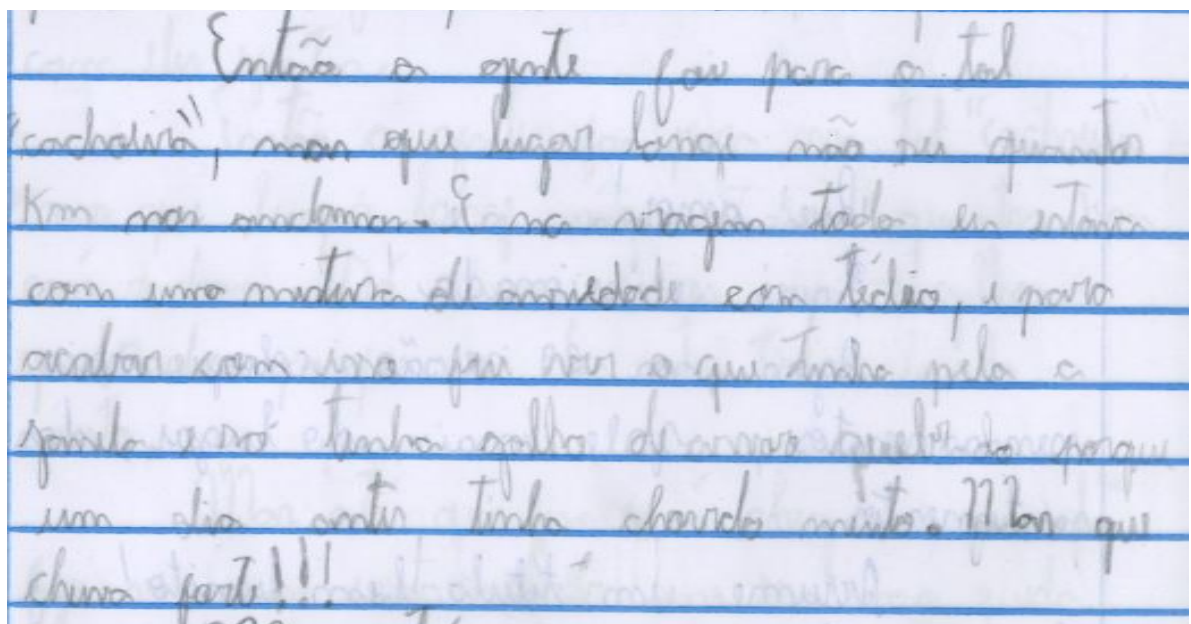 Então a gente fou para a tal
"cachoeira", mas que lugar longe não sei quantos
Km nos andamos. E na viagem toda eu estava
com uma mistura de ansiedade com tédio, e para
acabar com isso fui ver o que tinha pela a
janela e só tinha galho de arvore quebrado porque
um dia antes tinha chovido muito. Mas que
chuva forte!!!